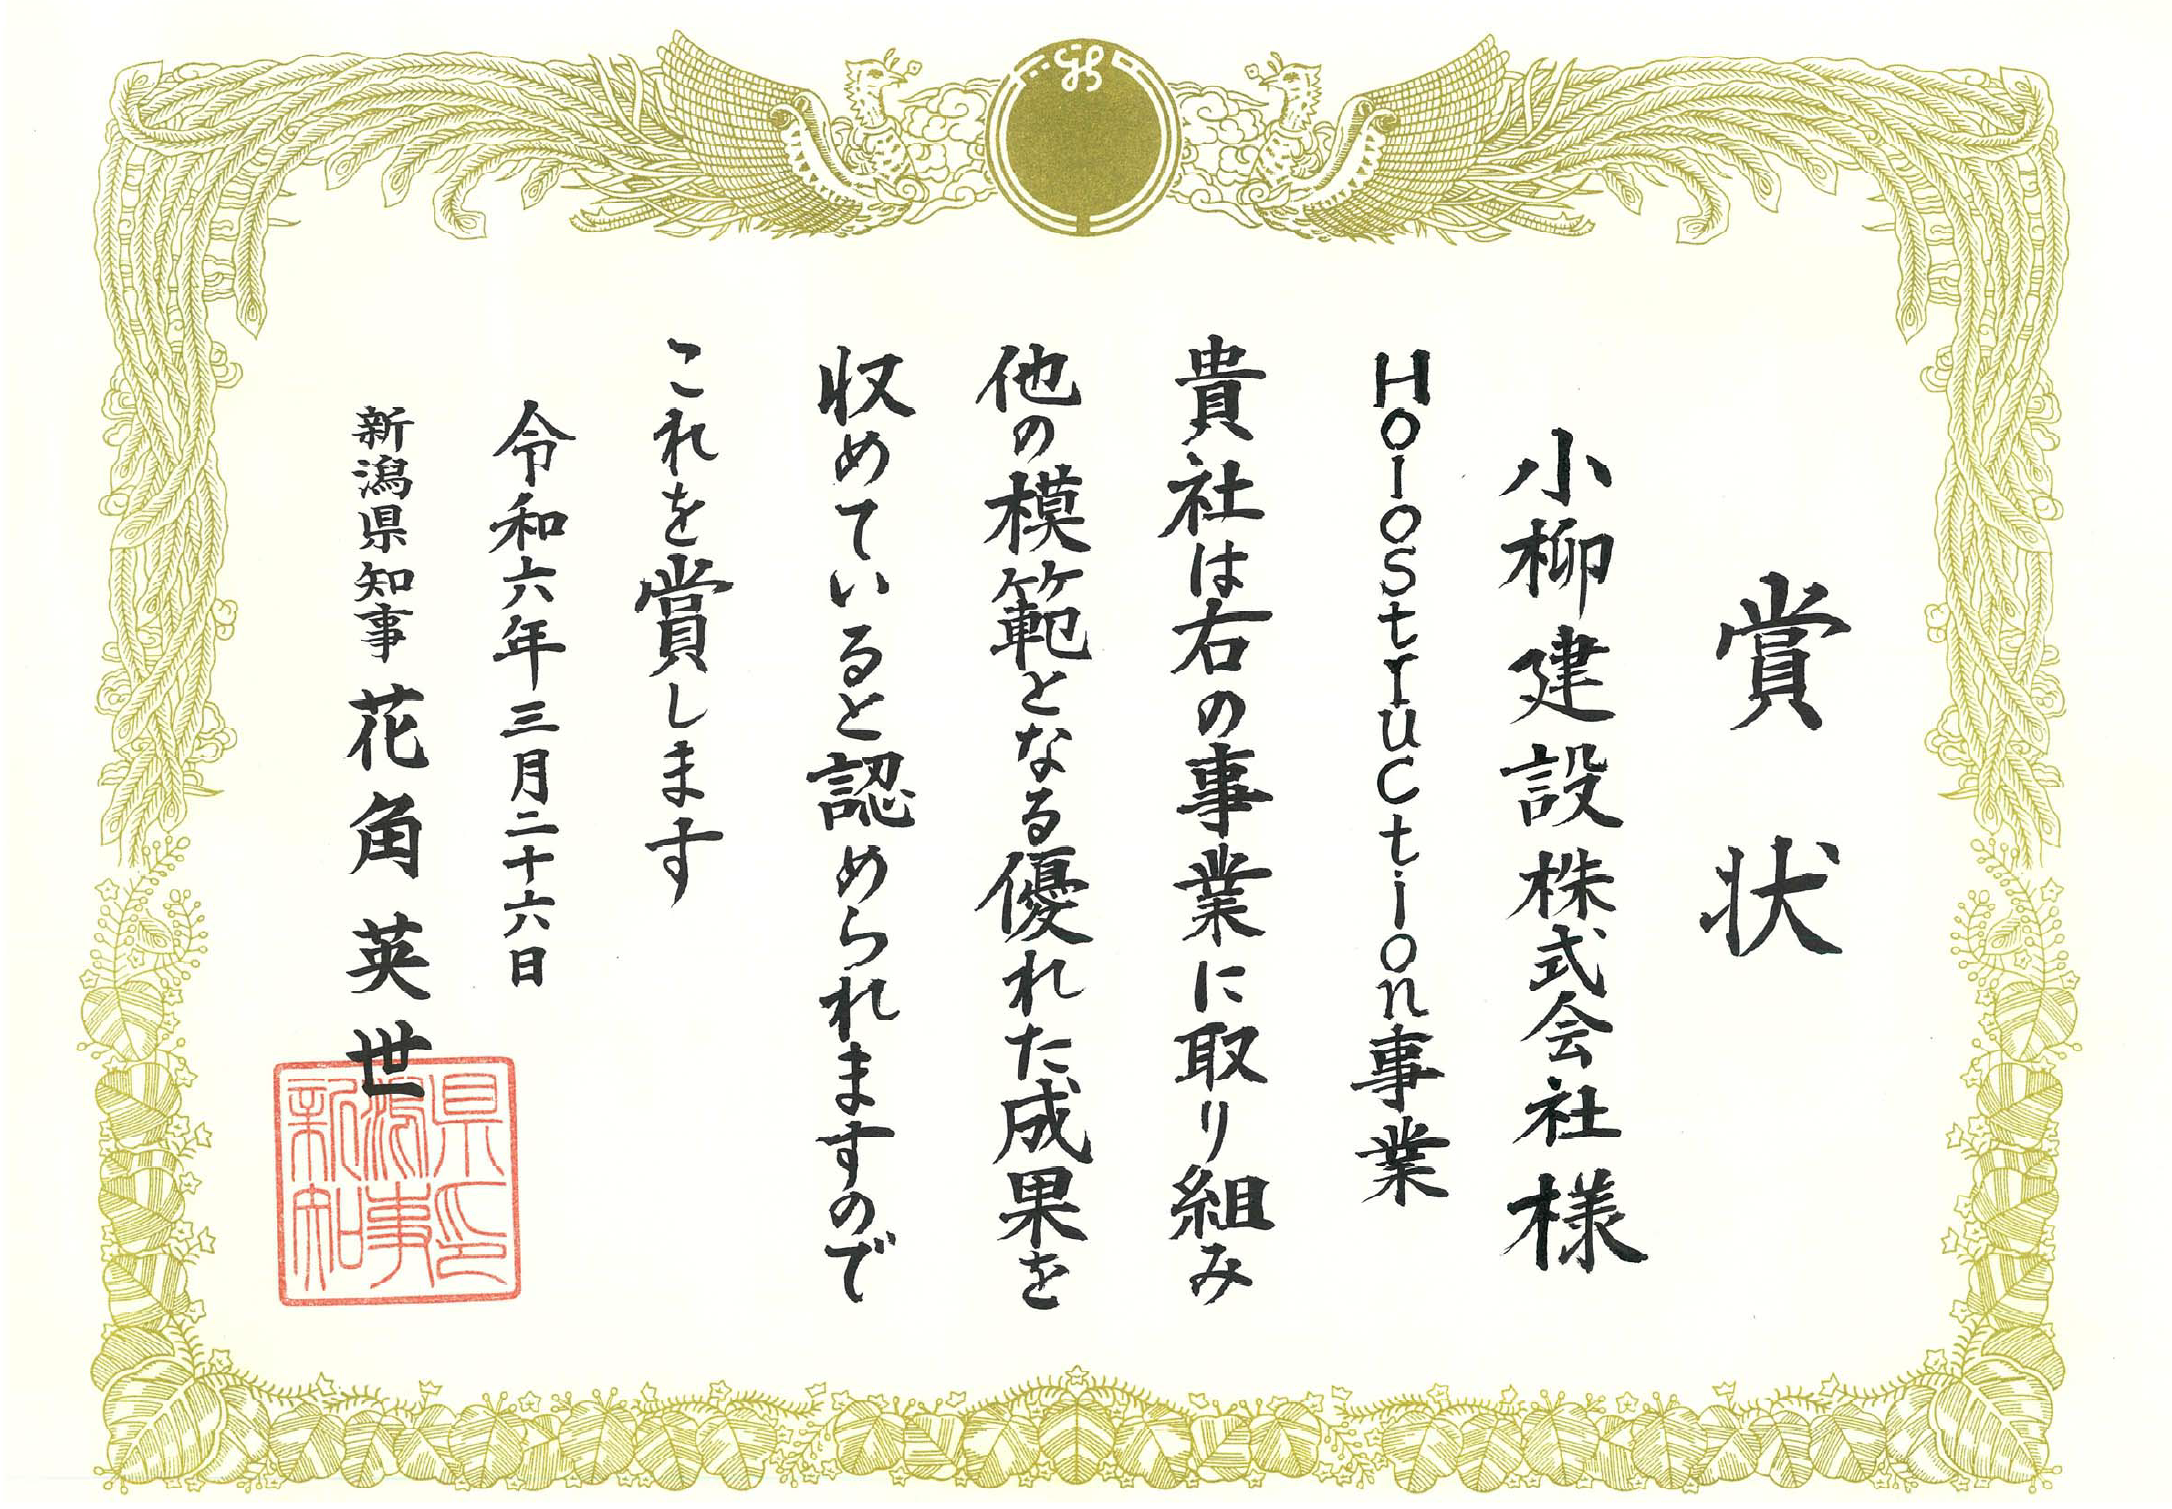 賞状
小柳建設株式会社様
Holostruction事業
貴社は右の事業に取り組み
他の模範となる優れた成果を
収めていると認められますので
これを賞します
令和六年三月二十六日
新潟県知事 花角英世
新潟県知事印